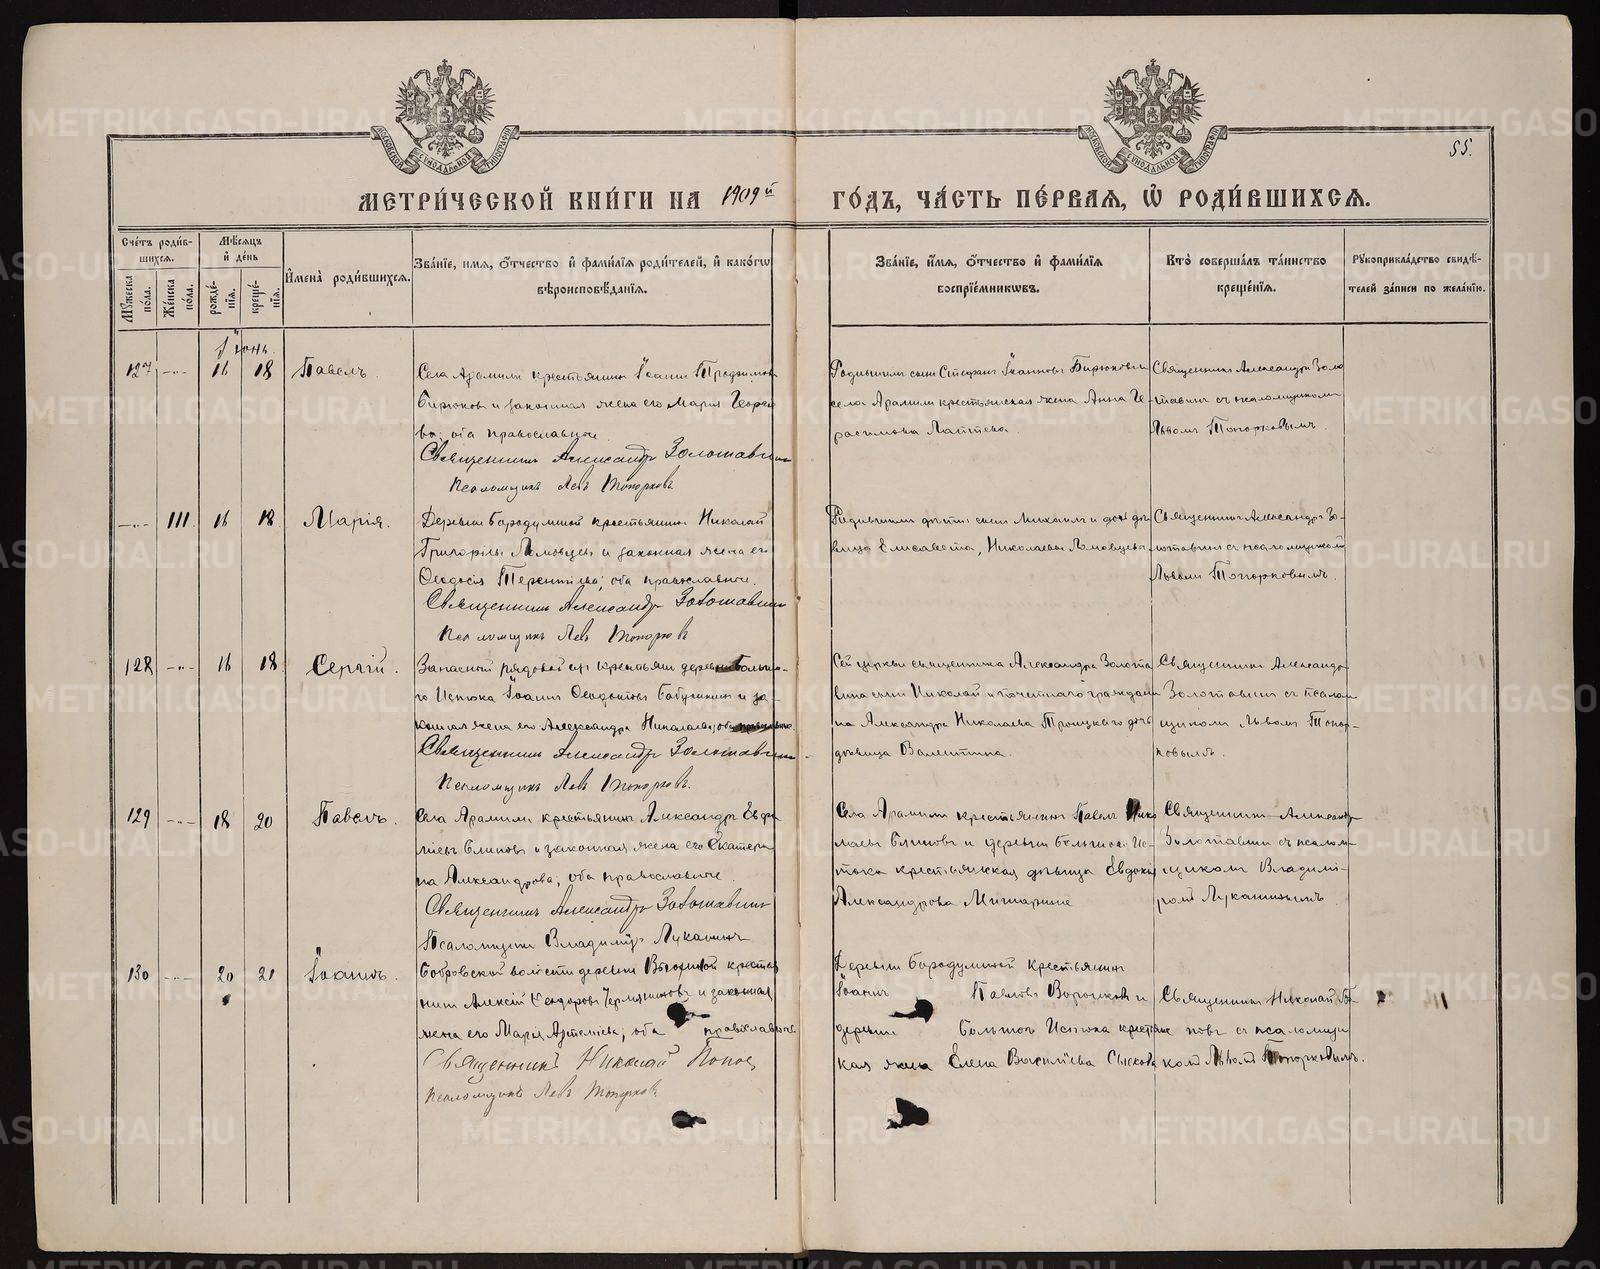 55.
МЕТРИ́ЧЕСКОЙ КНИ́ГИ НА 1909й ГО́ДЪ, ЧА́СТЬ ПЕ́РВАЯ, Ѡ҆ РОДИ́ВШИХСЯ.
Сче́тъ роди́в-
шихся.
Мѣ́сяцъ
и҆ де́нь
Мꙋ́жеска по́ла.
Же́нска по́ла.
рожде́-
нїя.
креще́-
нїя.
И҆мена̀ роди́вшихся.
Зва́нїе, имя, ѻ҆́тчество и҆ фами́лїя роди́телей, и҆ како́гѡ
вѣроисповѣ́данїя.
Зва́нїе, и҆́мя, ѻ҆́тчество и҆ фами́лїя
воспрїе́мникѡвъ.
Кто̀ соверша́лъ та́инство
креще́нїя.
Рꙋкоприкла́дство свидѣ́-
телей за́писи по жела́нїю.
Іюнь.
127 -"- 16 18 Павелъ.
Села Арамили крестьянинъ Іоаннъ Трофимовъ
Бирюковъ и законная жена его Марія Георгіе
ва; оба православные.
Священникъ Александръ Золотавинъ
Псаломщикъ Левъ Топорковъ
Родивший сынъ Стефанъ Іоанновъ Бирюковъ и
села Арамили крестьянская жена Анна Ге-
расимова Лаптева.
Священникъ Александръ Золо
тавинъ съ псаломщикомъ
Львомъ Топорковымъ.
-"- 111 16 18 Марія.
Деревни Бородулиной крестьянинъ Николай
Григорьевъ и законная жена его
Ѳеодосія Терентіева; оба православные.
Священникъ Александръ Золотавинъ
Псаломщикъ Левъ Топорковъ
дѣти сынъ Михаилъ и дочь дѣ-
вица Елисавета, Николаевы
Священникъ Александръ Зо-
лотавинъ съ псаломщикомъ
Львомъ Топорковымъ.
128 -"- 16 18 Сергій.
Запасный рядовой изъ крестьянъ деревни Больша-
го Истока Іоаннъ Ѳеодотовъ Бабушкинъ и за-
конная жена его Александра Николаева, оба
Священникъ Александръ Золотавинъ
Псаломщикъ Левъ Топорковъ.
Сей церкви священника Александра Золота
вина сынъ Николай и почетнаго граждани
на Александра Николаева Троицкаго дочь
дѣвица Валентина.
Священникъ Александръ
Золотавинъ съ псалом
щикомъ Львомъ Топор-
ковымъ.
129 -"- 18 20 Павелъ.
Села Арамили крестьянинъ Александръ
Блиновъ и законная жена его Екатери
на Александрова, оба православные.
Священникъ Александръ Золотавинъ
Псаломщикъ Владиміръ Луканинъ
Села Арамили крестьянинъ Павелъ Нико
лаевъ Блиновъ и деревни Большаго Ис-
тока крестьянская дѣвица Евдокія
Александрова
Священникъ Александръ
Золотавинъ съ псалом-
щикомъ Владимі-
ромъ Луканинымъ.
130 -"- 20 21 Іоаннъ.
Бобровской волости деревни крестья
нинъ Алексій Ѳеодоровъ и законная
жена его Марія Артеміева, оба православные
Священникъ Николай Поповъ
Псаломщикъ Левъ Топорковъ.
Деревни Бородулиной крестьянинъ
Іоаннъ Павловъ и
деревни Большого Истока крестьянс
кая жена Елена Васильева
Священникъ Николай По
повъ съ псаломщи
комъ Львомъ Топорковымъ.
METRIKI.GASO-URAL.RU